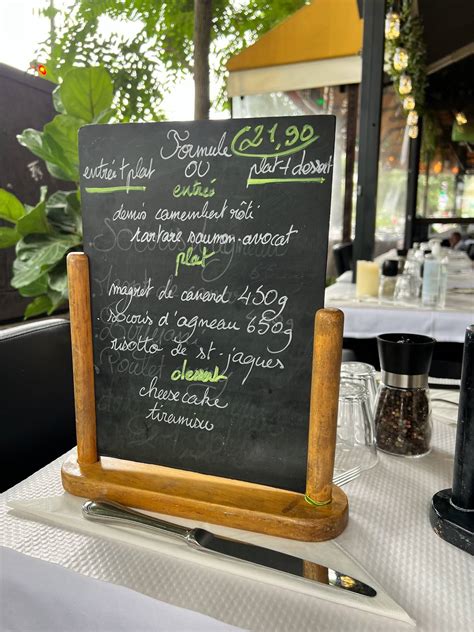 Formule €21,90
entrée + plat OU plat + dessert
entrée
demis camembert rôti
tartare saumon-avocat
plat
magret de canard 450g
souris d'agneau 650g
risotto de st-jaques
dessert
cheesecake
tiramisu